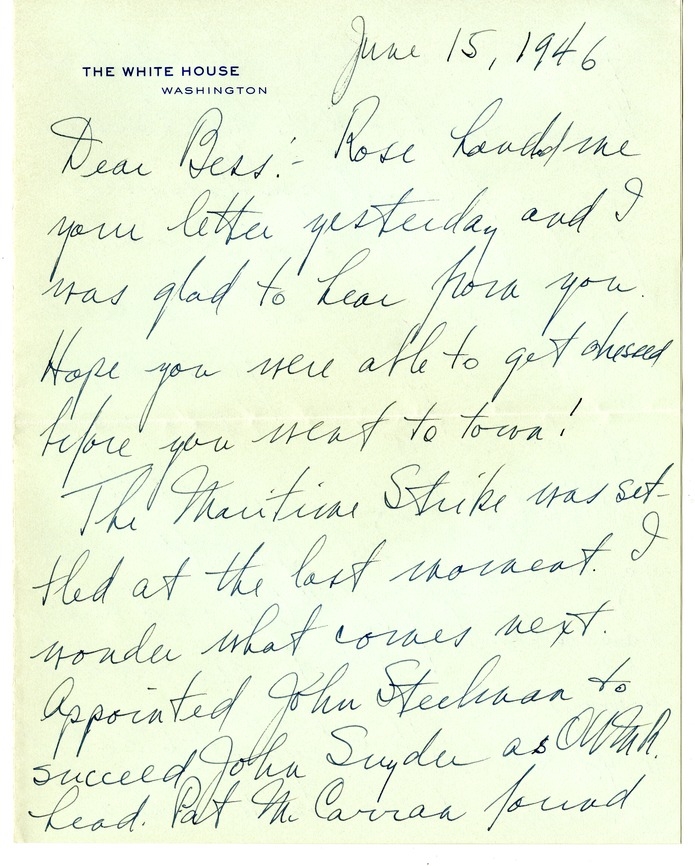 June 15, 1946
THE WHITE HOUSE
WASHINGTON
Dear Bess:- Rose handed me
your letter yesterday and I
was glad to hear from you.
Hope you were able to get dressed
before you went to town!
The Maritime Strike was set-
tled at the last moment. I
wonder what comes next.
Appointed John Steelman to
succeed John Snyder as OWMR.
head. Pat McCarran found